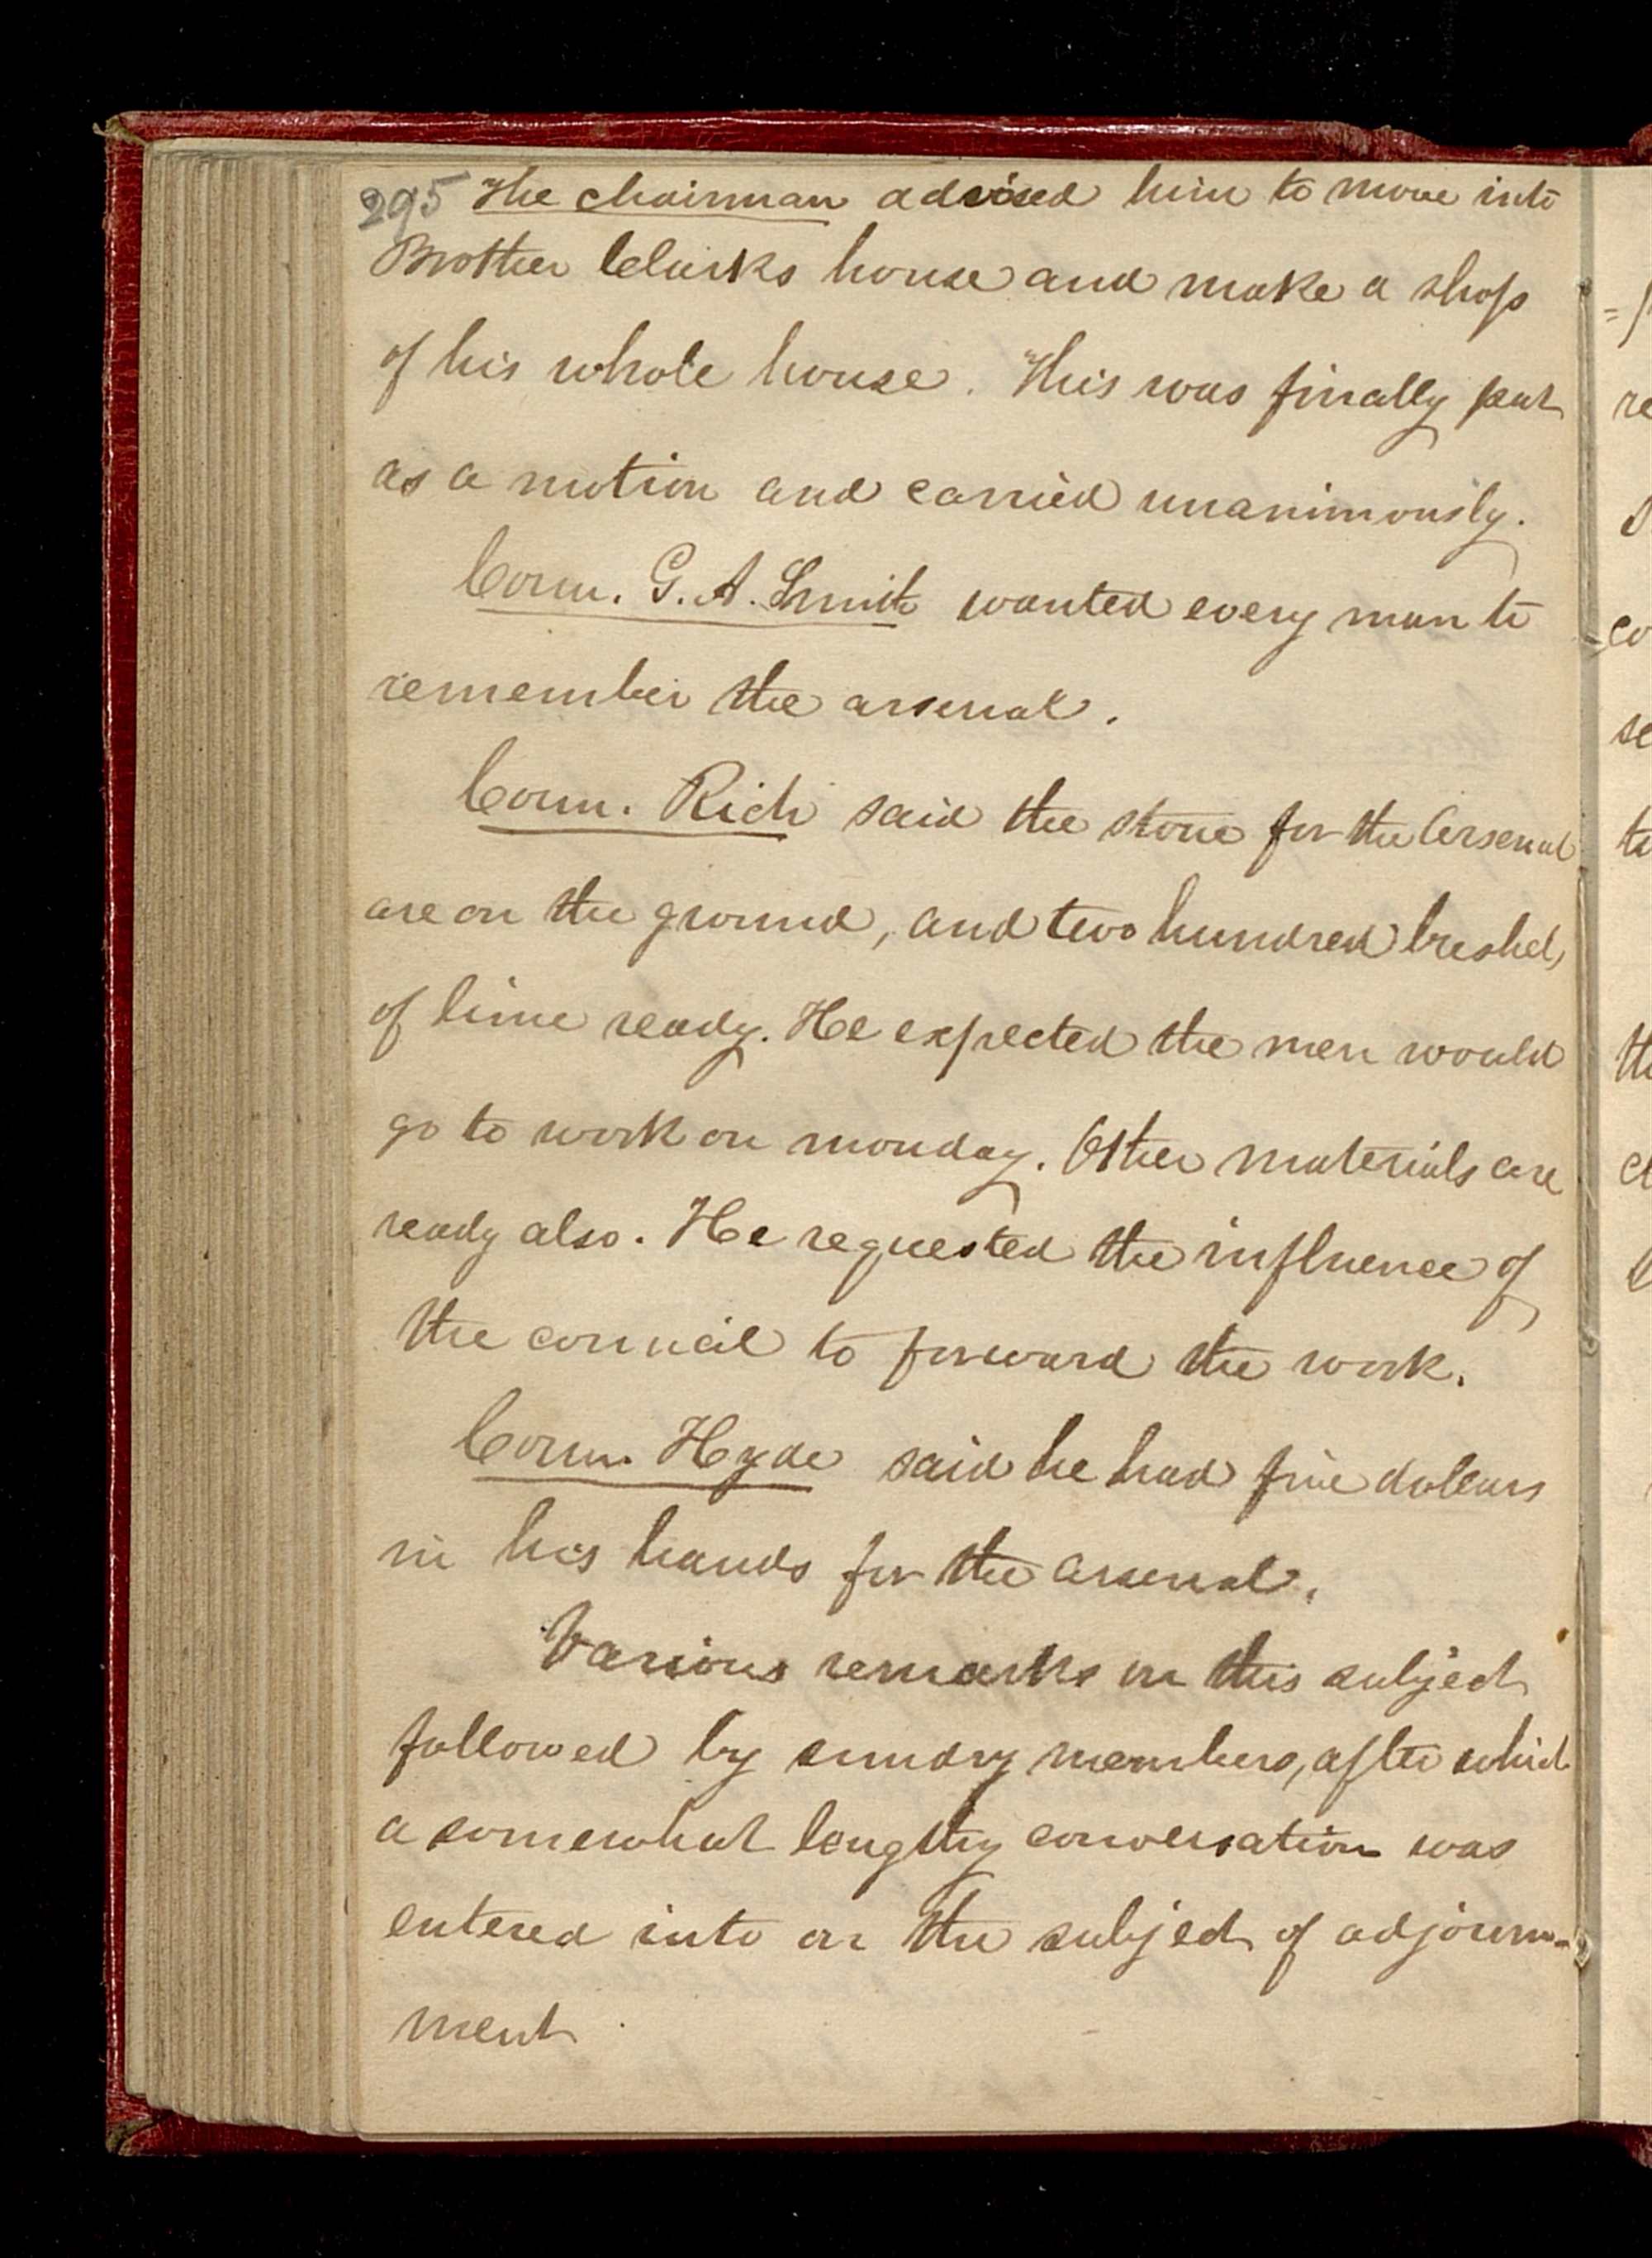 295 The chairman advised him to move into
Brother Clarks house and make a shop
of his whole house. This was finally put
as a motion and carried unanimously.
Coun. G. A. Smith wanted every man to
remember the arsenal.
Coun. Rich said the stone for the Arsenal
are on the ground, and two hundred bushels
of lime ready. He expected the men would
go to work on monday. Other materials are
ready also. He requested the influence of
the council to forward the work.
Coun. Hyde said he had five dollars
in his hands for the arsenal.
Various remarks on this subject
followed by sundry members, after which
a somewhat lengthy conversation was
entered into on the subject of adjourn-
ment